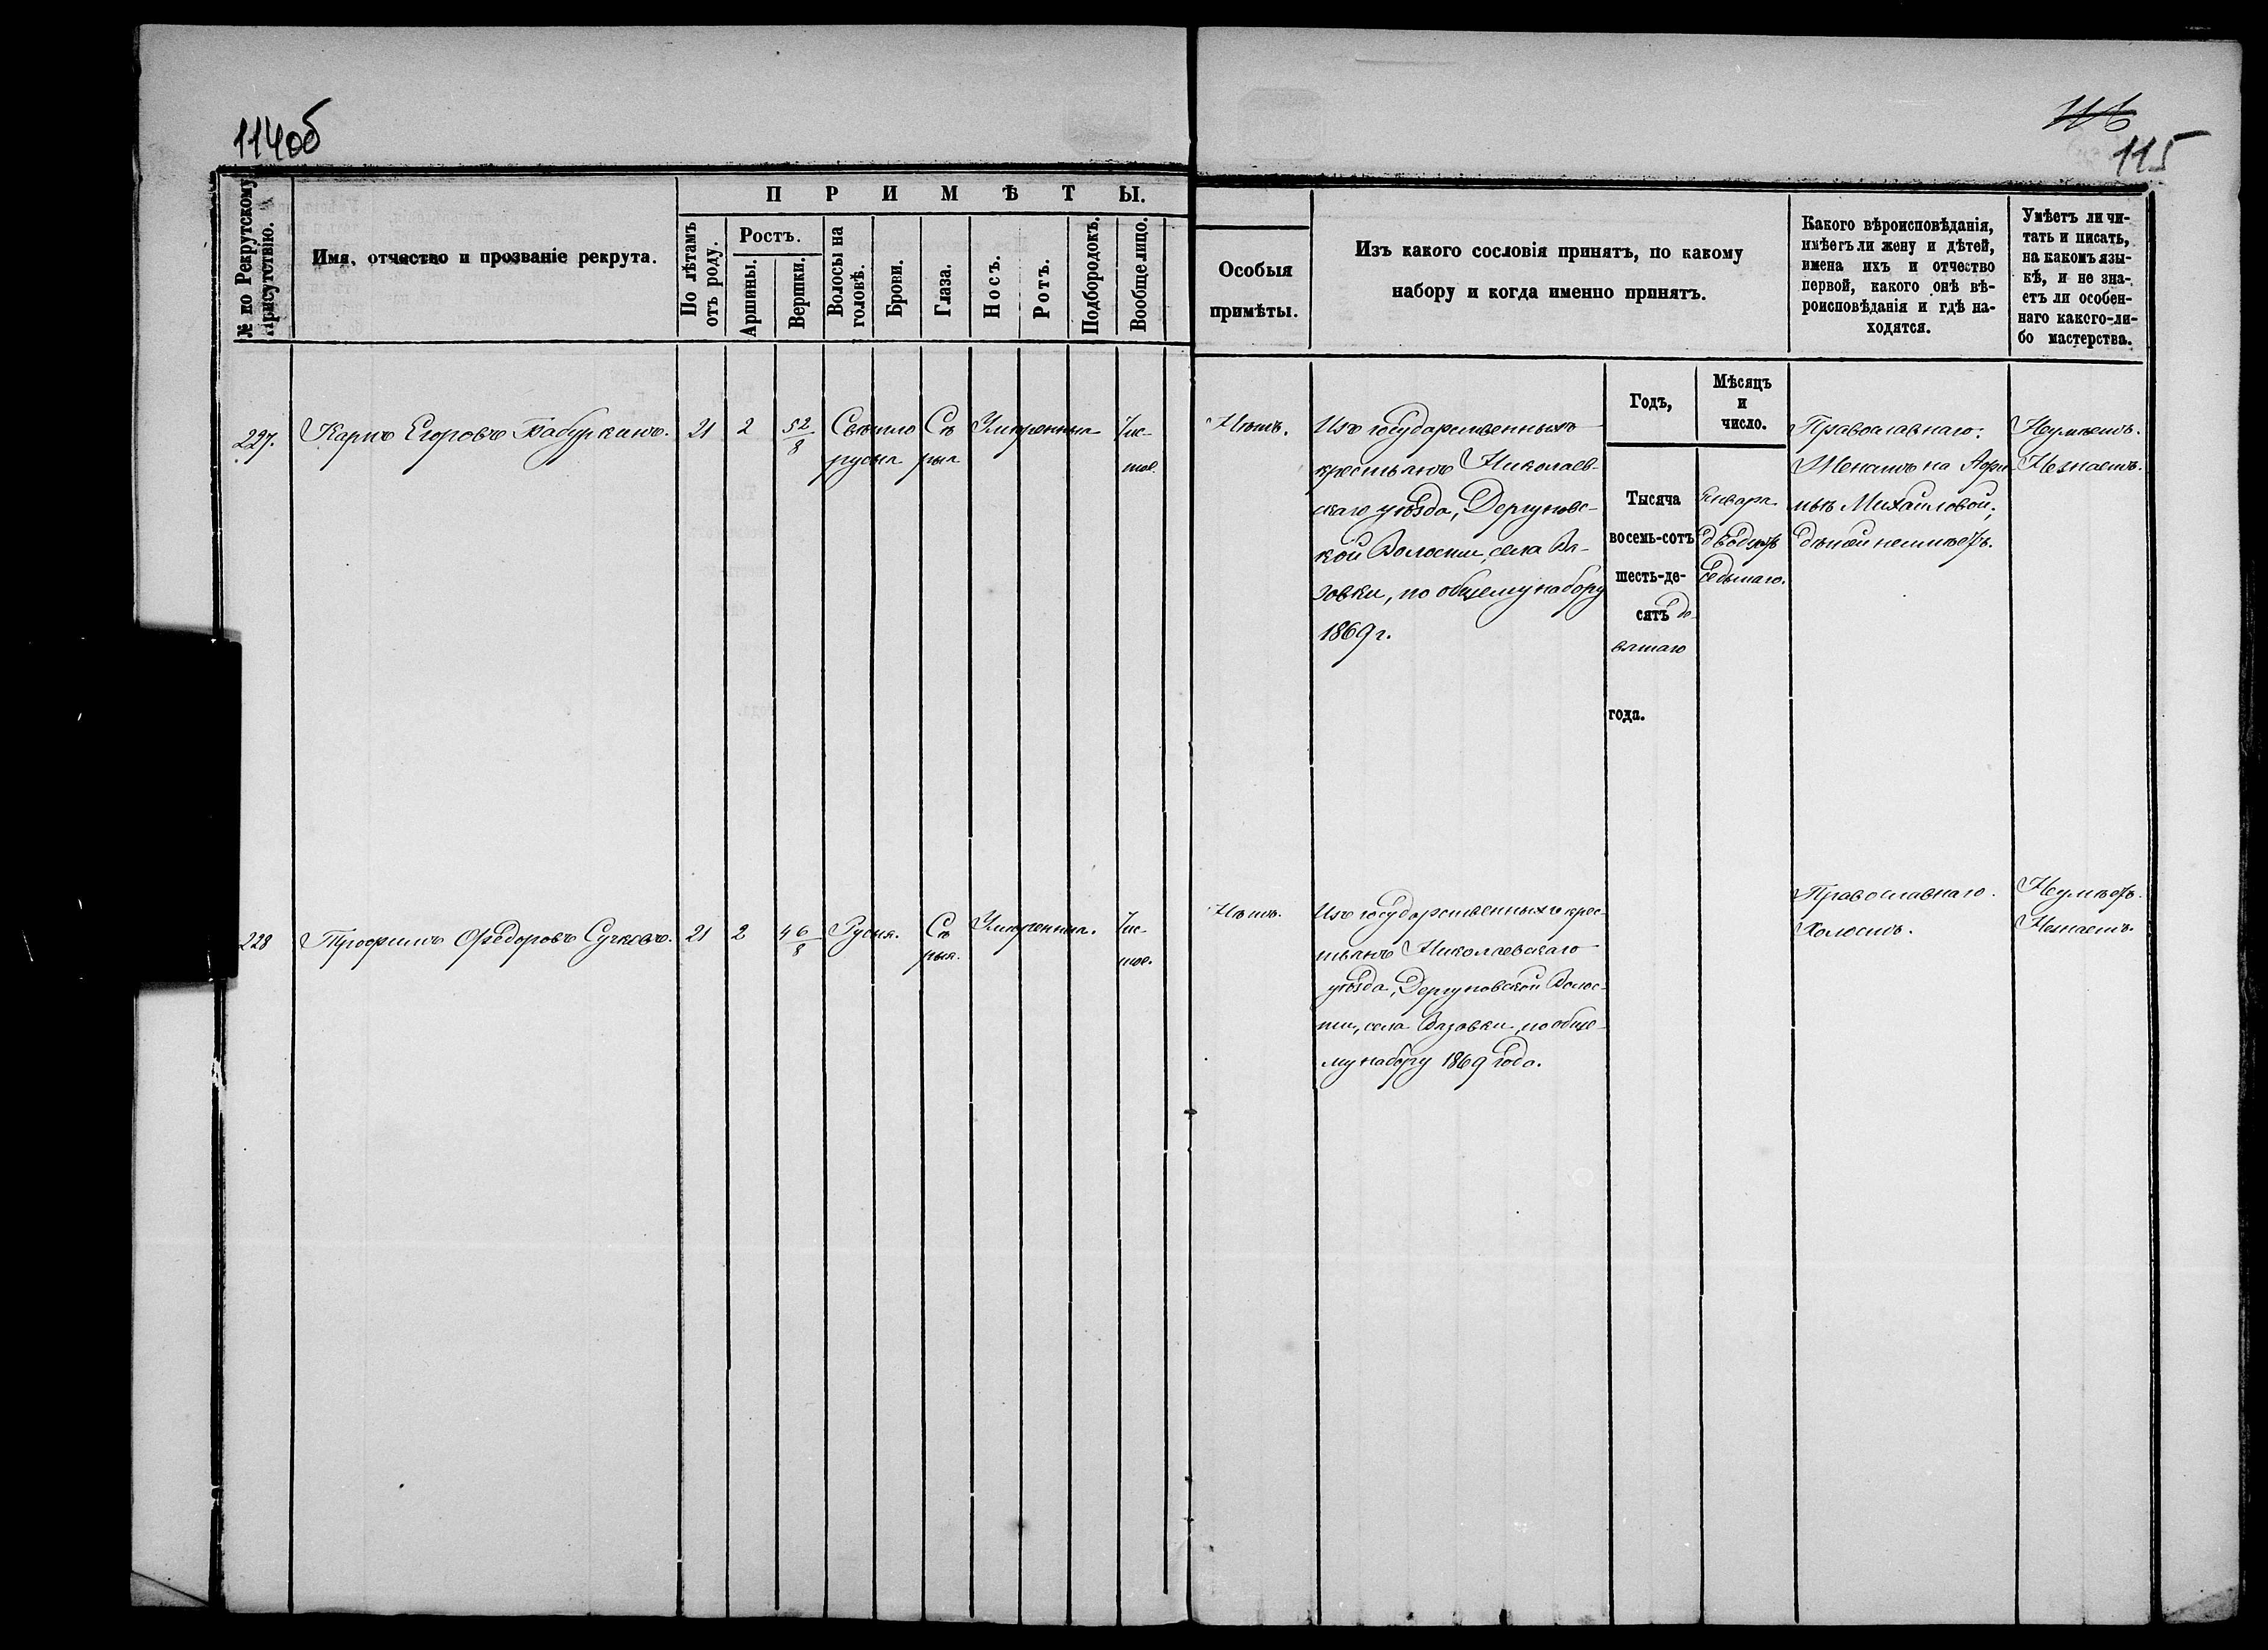 114об
115
№ по Рекрутскому Присутствію.
Имя, отчество и прозваніе рекрута.
ПРИМѢТЫ.
По лѣтамъ отъ роду.
Ростъ.
Аршины.
Вершки.
Волосы на головѣ.
Брови.
Глаза.
Носъ.
Ротъ.
Подбородокъ.
Вообще лицо.
Особыя
примѣты.
Изъ какого сословія принятъ, по какому
набору и когда именно принятъ.
Какого вѣроисповѣданія,
имѣетъ ли жену и дѣтей,
имена ихъ и отчество
первой, какого онѣ вѣ-
роисповѣданія и гдѣ на-
ходятся.
Умѣетъ ли чи-
тать и писать,
на какомъ язы-
кѣ, и не зна-
етъ ли особен-
наго какого-ли-
бо мастерства.
Годъ,
Мѣсяцъ
и
число.
227.
Карпъ Егоровъ Бабуркинъ.
21
2
5 2/8
Свѣтло
русыя
Сѣ
рыя
Умѣренныя
Чис-
тое.
Нѣтъ.
Изъ государственныхъ
крестьянъ Николаев-
скаго уѣзда, Дергуновс-
кой Волости, села Вя-
зовки, по общему набору
1869 г.
Тысяча
восемь-сотъ
шесть-де-
сятъ де
вятаго
года.
Января
двадцать
седьмаго.
Православнаго.
Женатъ на
Михайловой;
дѣтей неимѣетъ.
Неумѣетъ.
Незнаетъ.
228
Трофимъ Ѳедоровъ Сучковъ.
21
2
4 6/8
Русыя.
Сѣ
рыя.
Умѣренныя.
Чис-
тое.
Нѣтъ.
Изъ государственныхъ крес-
тьянъ Николаевскаго
уѣзда, Дергуновской Волос-
ти, села Вязовки, по обще-
му набору 1869 года.
Православнаго.
Холостъ.
Неумѣетъ.
Незнаетъ.